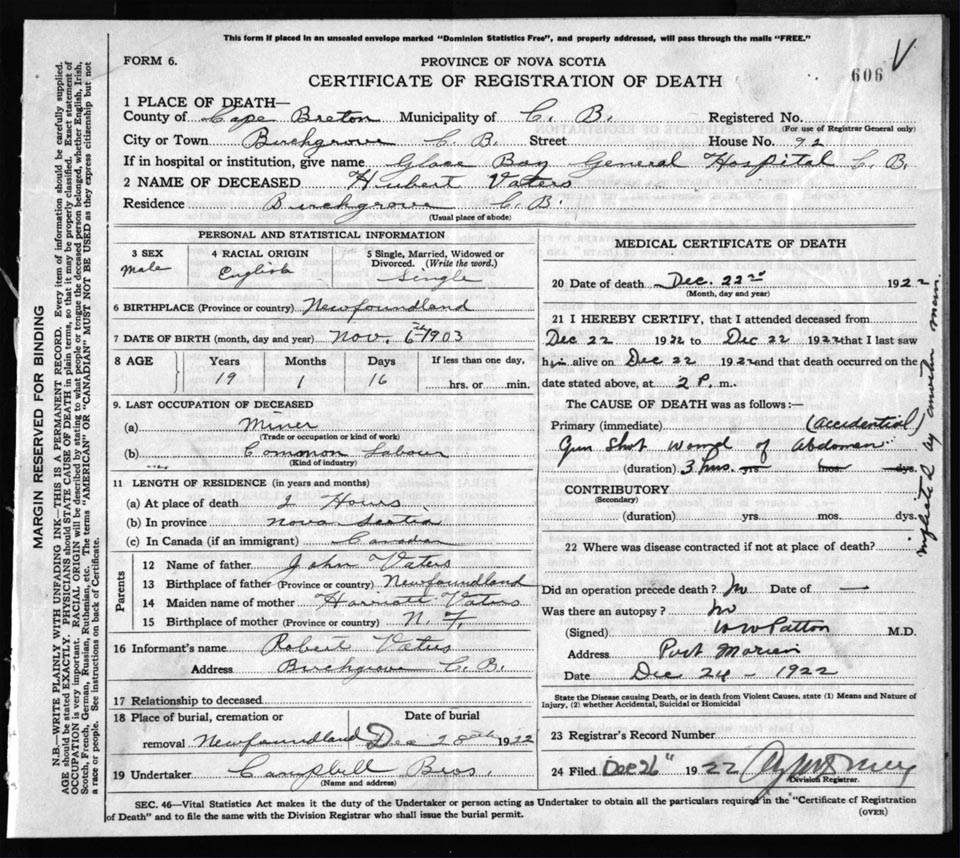 This form if placed in an unsealed envelope marked "Dominion Statistics Free", and properly addressed, will pass through the mails "FREE."
FORM 6.
PROVINCE OF NOVA SCOTIA
606 V
CERTIFICATE OF REGISTRATION OF DEATH
1 PLACE OF DEATH—
County of Cape Breton Municipality of C. B. Registered No.
(For use of Registrar General only)
City or Town Birchgrove C. B. Street House No. 92
If in hospital or institution, give name Glace Bay General Hospital C. B.
2 NAME OF DECEASED Hubert Vaters
Residence Birchgrove C. B.
(Usual place of abode)
PERSONAL AND STATISTICAL INFORMATION
3 SEX Male
4 RACIAL ORIGIN English
5 Single, Married, Widowed or Divorced. (Write the word.) Single
6 BIRTHPLACE (Province or country) Newfoundland
7 DATE OF BIRTH (month, day and year) Nov. 6th 1903
8 AGE Years Months Days If less than one day,
19 1 16 hrs. or min.
9. LAST OCCUPATION OF DECEASED
(a) Miner
(Trade or occupation or kind of work)
(b) Common Labour
(Kind of industry)
11 LENGTH OF RESIDENCE (in years and months)
(a) At place of death 2 Hours
(b) In province Nova Scotia
(c) In Canada (if an immigrant) Canadian
Parents
12 Name of father John Vaters
13 Birthplace of father (Province or country) Newfoundland
14 Maiden name of mother Harriett Vaters
15 Birthplace of mother (Province or country) N. F.
16 Informant's name Robert Vaters
Address Birchgrove C. B.
17 Relationship to deceased
18 Place of burial, cremation or removal Newfoundland
Date of burial Dec 28th 1922
19 Undertaker Campbell Bros.
(Name and address)
MEDICAL CERTIFICATE OF DEATH
20 Date of death Dec. 22nd 1922
(Month, day and year)
21 I HEREBY CERTIFY, that I attended deceased from
Dec 22 1922 to Dec 22 1922 that I last saw
him alive on Dec 22 1922 and that death occurred on
date stated above, at 2 P. m.
The CAUSE OF DEATH was as follows:—
Primary (immediate) (accidential)
Gun Shot wound of Abdomen
(duration) 3 hrs. yrs mos. dys.
CONTRIBUTORY
(Secondary)
(duration) yrs. mos. dys.
inflicted by another man
22 Where was disease contracted if not at place of death?
Did an operation precede death? No Date of —
Was there an autopsy? No
(Signed) W W Patton M.D.
Address Port Morien
Date Dec 24 - 1922
State the Disease causing Death, or in death from Violent Causes, state (1) Means and Nature of
Injury, (2) whether Accidental, Suicidal or Homicidal
23 Registrar's Record Number
24 Filed Dec 26" 1922
Division Registrar.
SEC. 46—Vital Statistics Act makes it the duty of the Undertaker or person acting as Undertaker to obtain all the particulars required in the "Certificate of Registration
of Death" and to file the same with the Division Registrar who shall issue the burial permit.
(OVER)
MARGIN RESERVED FOR BINDING
N.B.—WRITE PLAINLY WITH UNFADING INK—THIS IS A PERMANENT RECORD. Every item of information should be carefully supplied.
AGE should be stated EXACTLY. PHYSICIANS should STATE CAUSE OF DEATH in plain terms, so that it may be properly classified. Exact statement of
OCCUPATION is very important. RACIAL ORIGIN will be described by stating to what people or tongue the deceased person belonged, whether English, Irish,
Scotch, French, German, Russian, Ruthenian, etc. The terms "AMERICAN" or "CANADIAN" MUST NOT BE USED as they express citizenship but not
a race or people. See instructions on back of Certificate.